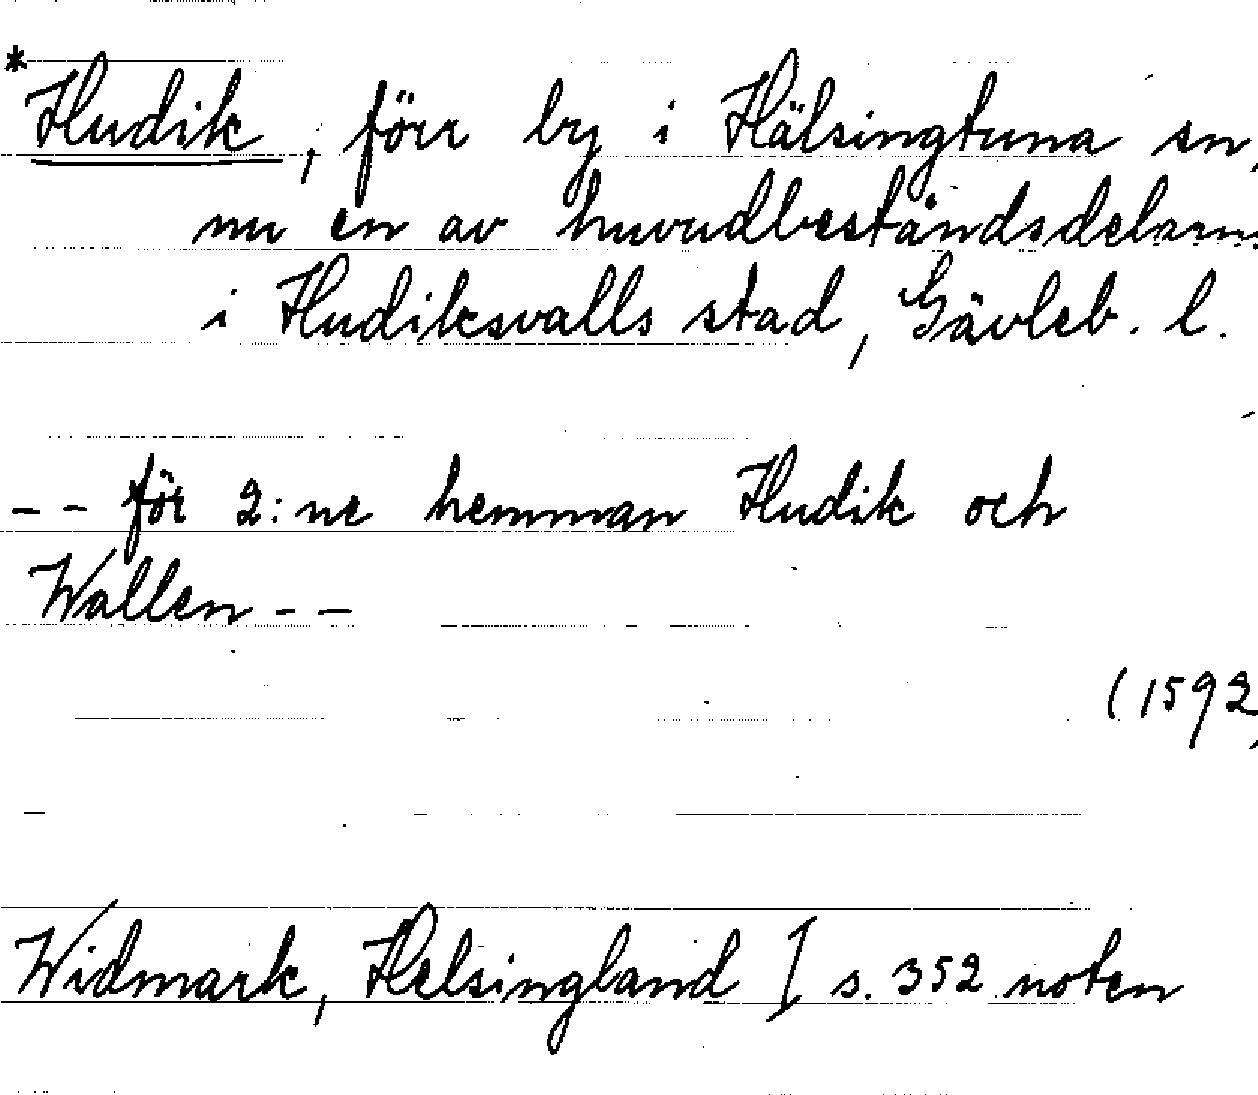 *Hudik, förr by i Hälsingtuna sn,
nu en av huvudbeståndsdelarna
i Hudiksvalls stad, Gävleb. l.
-- för 2:ne hemman Hudik och
Wallen --
(1592)
Widmark, Helsingland I s. 352 noten